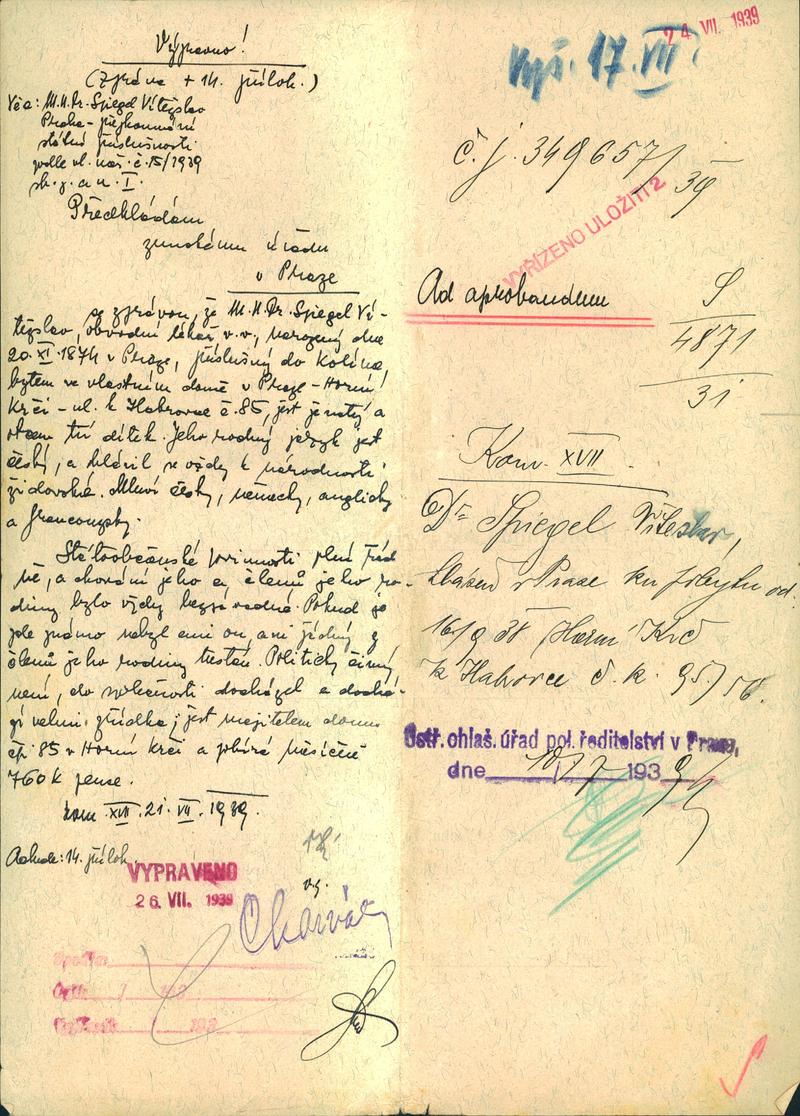 Výpravno!
(Zpráva + 14. příloh.)
Věc: M.U.Dr. Spiegel Vítězslav
Praha - přezkoumání
státní příslušnosti
podle vl. nař. č. 15/1939
sb. z. a n. I.
Předkládám
zemskému úřadu
v Praze
se zprávou, že M.U.Dr. Spiegel Ví-
tězslav, obvodní lékař v.v., narozený dne
20. XI. 1874 v Praze, příslušný do Kolína,
bytem ve vlastním domě v Praze - Horní
Krči - ul. k Habrovce č. 85, jest ženatý a
otcem tří dítek. Jeho rodný jazyk jest
český, a hlásil se vždy k národnosti
židovské. Mluví česky, německy, anglicky
a francouzsky.
Státoobčanské povinnosti plní řád
ně, a chování jeho a členů jeho ro-
diny bylo vždy bezvadné. Pokud je
zde známo nebyl ani on, ani žádný z
členů jeho rodiny trestán. Politicky činný
není, do společnosti docházel a dochá-
zí velmi zřídka; jest majitelem domu
čp. 85 v Horní Krči a pobírá měsíčně
760 K pense.
kom. XVII. 21. VII. 1939.
Adnde: 14. příloh.
VYPRAVENO
26. VII. 1939
24 VII. 1939
Vyř. 17. VII.
č. j. 349657/39
VYŘÍZENO ULOŽITI 2
Ad aprobandum
S
4871
31
Kom. XVII.
Dr Spiegel Vítěslav,
hlášen v Praze ku pobytu od
16/9 38 Horní Krč
k Habrovce č. k. 95/56.
Ústř. ohlaš. úřad pol. ředitelství v Praze,
dne 10/7 1939